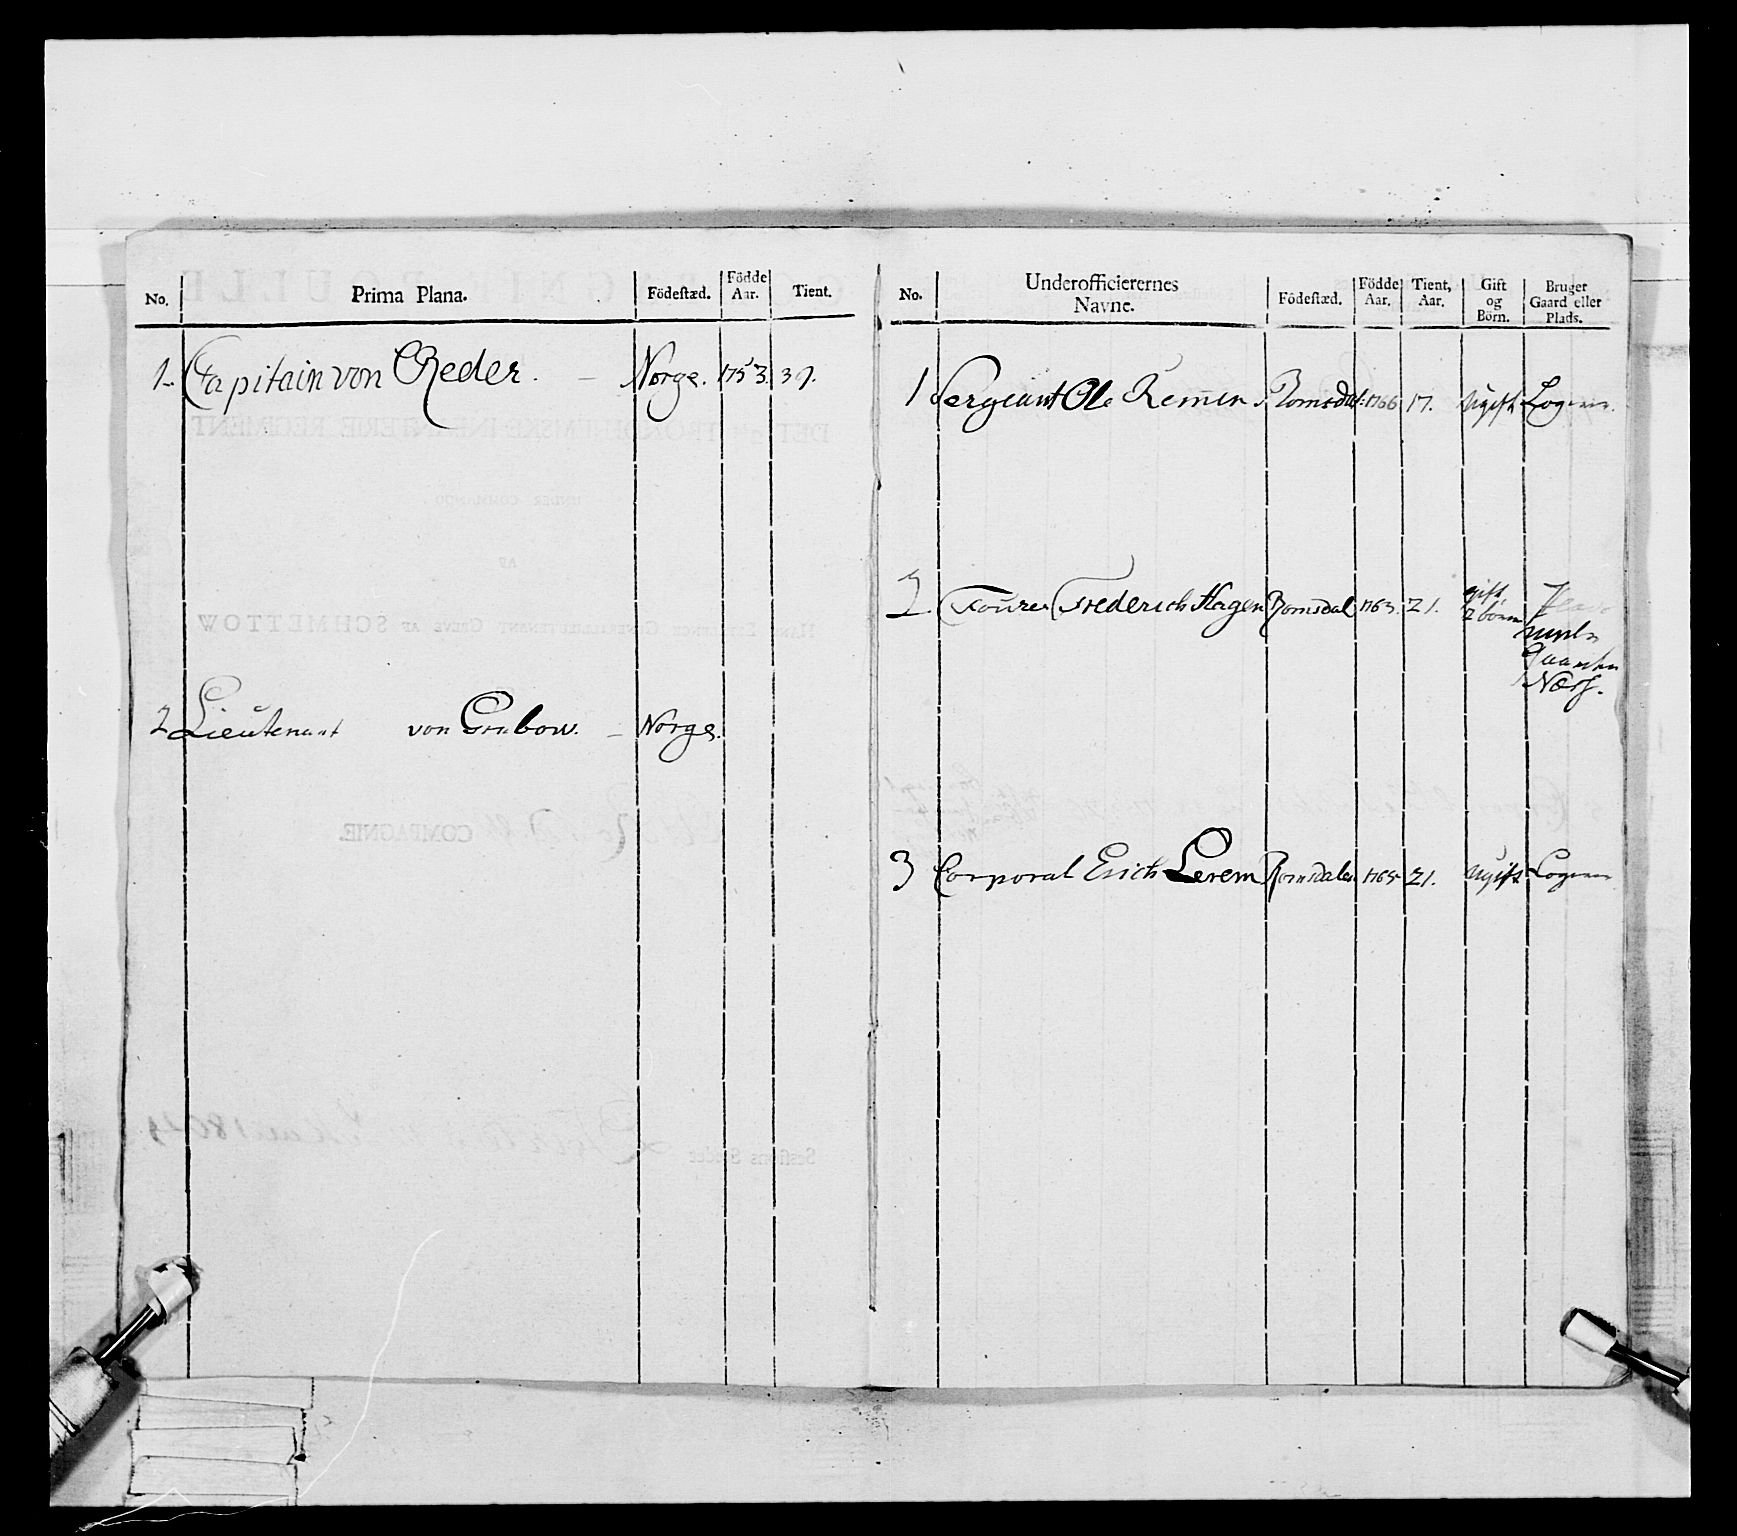 No. Prima Plana. Födestæd. Födde Aar. Tient.
1. Capitain von Reder. – Norge. 1753. 37.
2 Lieutenant von Grabow. – Norge.
No. Underofficierernes Navne. Födestæd. Födde Aar. Tient, Aar. Gift og Börn. Bruger Gaard eller Plads.
1 Sergiant Ole Remen Romsdal 1766 17. Ugift
2 Fourer Frederich Hagen Romsdal 1763. 21. gift, 2 börn
Næss.
3 Corporal Erich Lerem Romsdalen 1765 21. Ugift